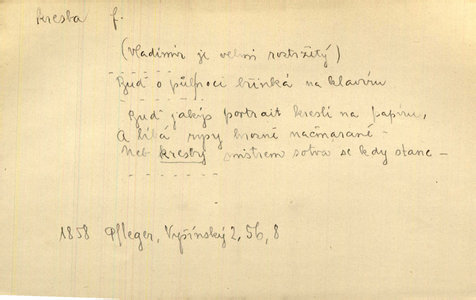 kresba f.
(Vladimír je velmi roztržitý)
Buď o půlnoci břinká na klavíru
Buď jakýs portrait kreslí na papíru,
A líbá rysy hrozně načmarané –
Neb kresby mistrem sotva se kdy stane –
1858 Pfleger, Vyšínský 2, 56, 8